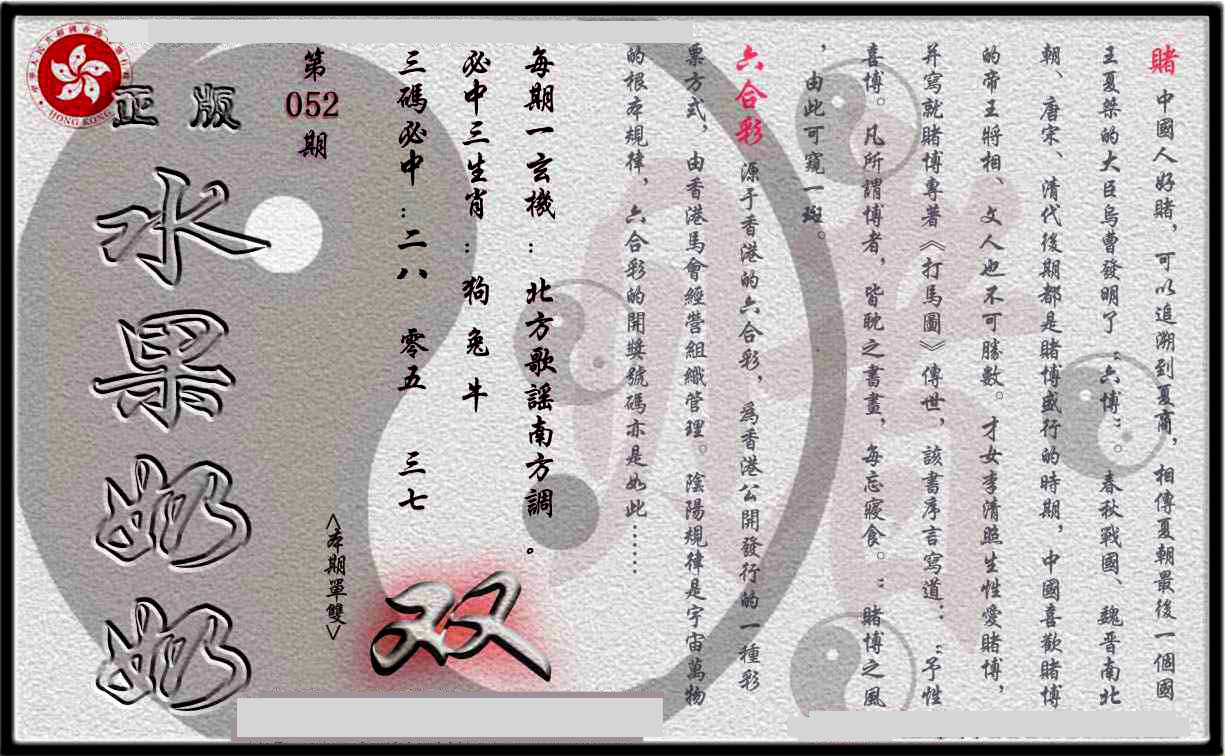 賭 中國人好賭，可以追溯到夏商，相傳夏朝最後一個國
王夏桀的大臣烏曹發明了“六博”。春秋戰國、魏晋南北
朝、唐宋、清代後期都是賭博盛行的時期，中國喜歡賭博
的帝王將相、文人也不可勝數。才女李清照生性愛賭博，
并寫就賭博專著《打馬圖》傳世，該書序言寫道：“予性
喜博。凡所謂博者，皆耽之書畫，每忘寢食。”賭博之風
，由此可窺一斑。
六合彩 源于香港的六合彩，為香港公開發行的一種彩
票方式，由香港馬會經營組織管理。陰陽規律是宇宙萬物
的根本規律，六合彩的開獎號碼亦是如此……
每期一玄機：北方歌謡南方調。
必中三生肖：狗 兔 牛
三碼必中：二八 零五 三七
双
<本期單雙>
第052期
正版
水果奶奶
HONG KONG